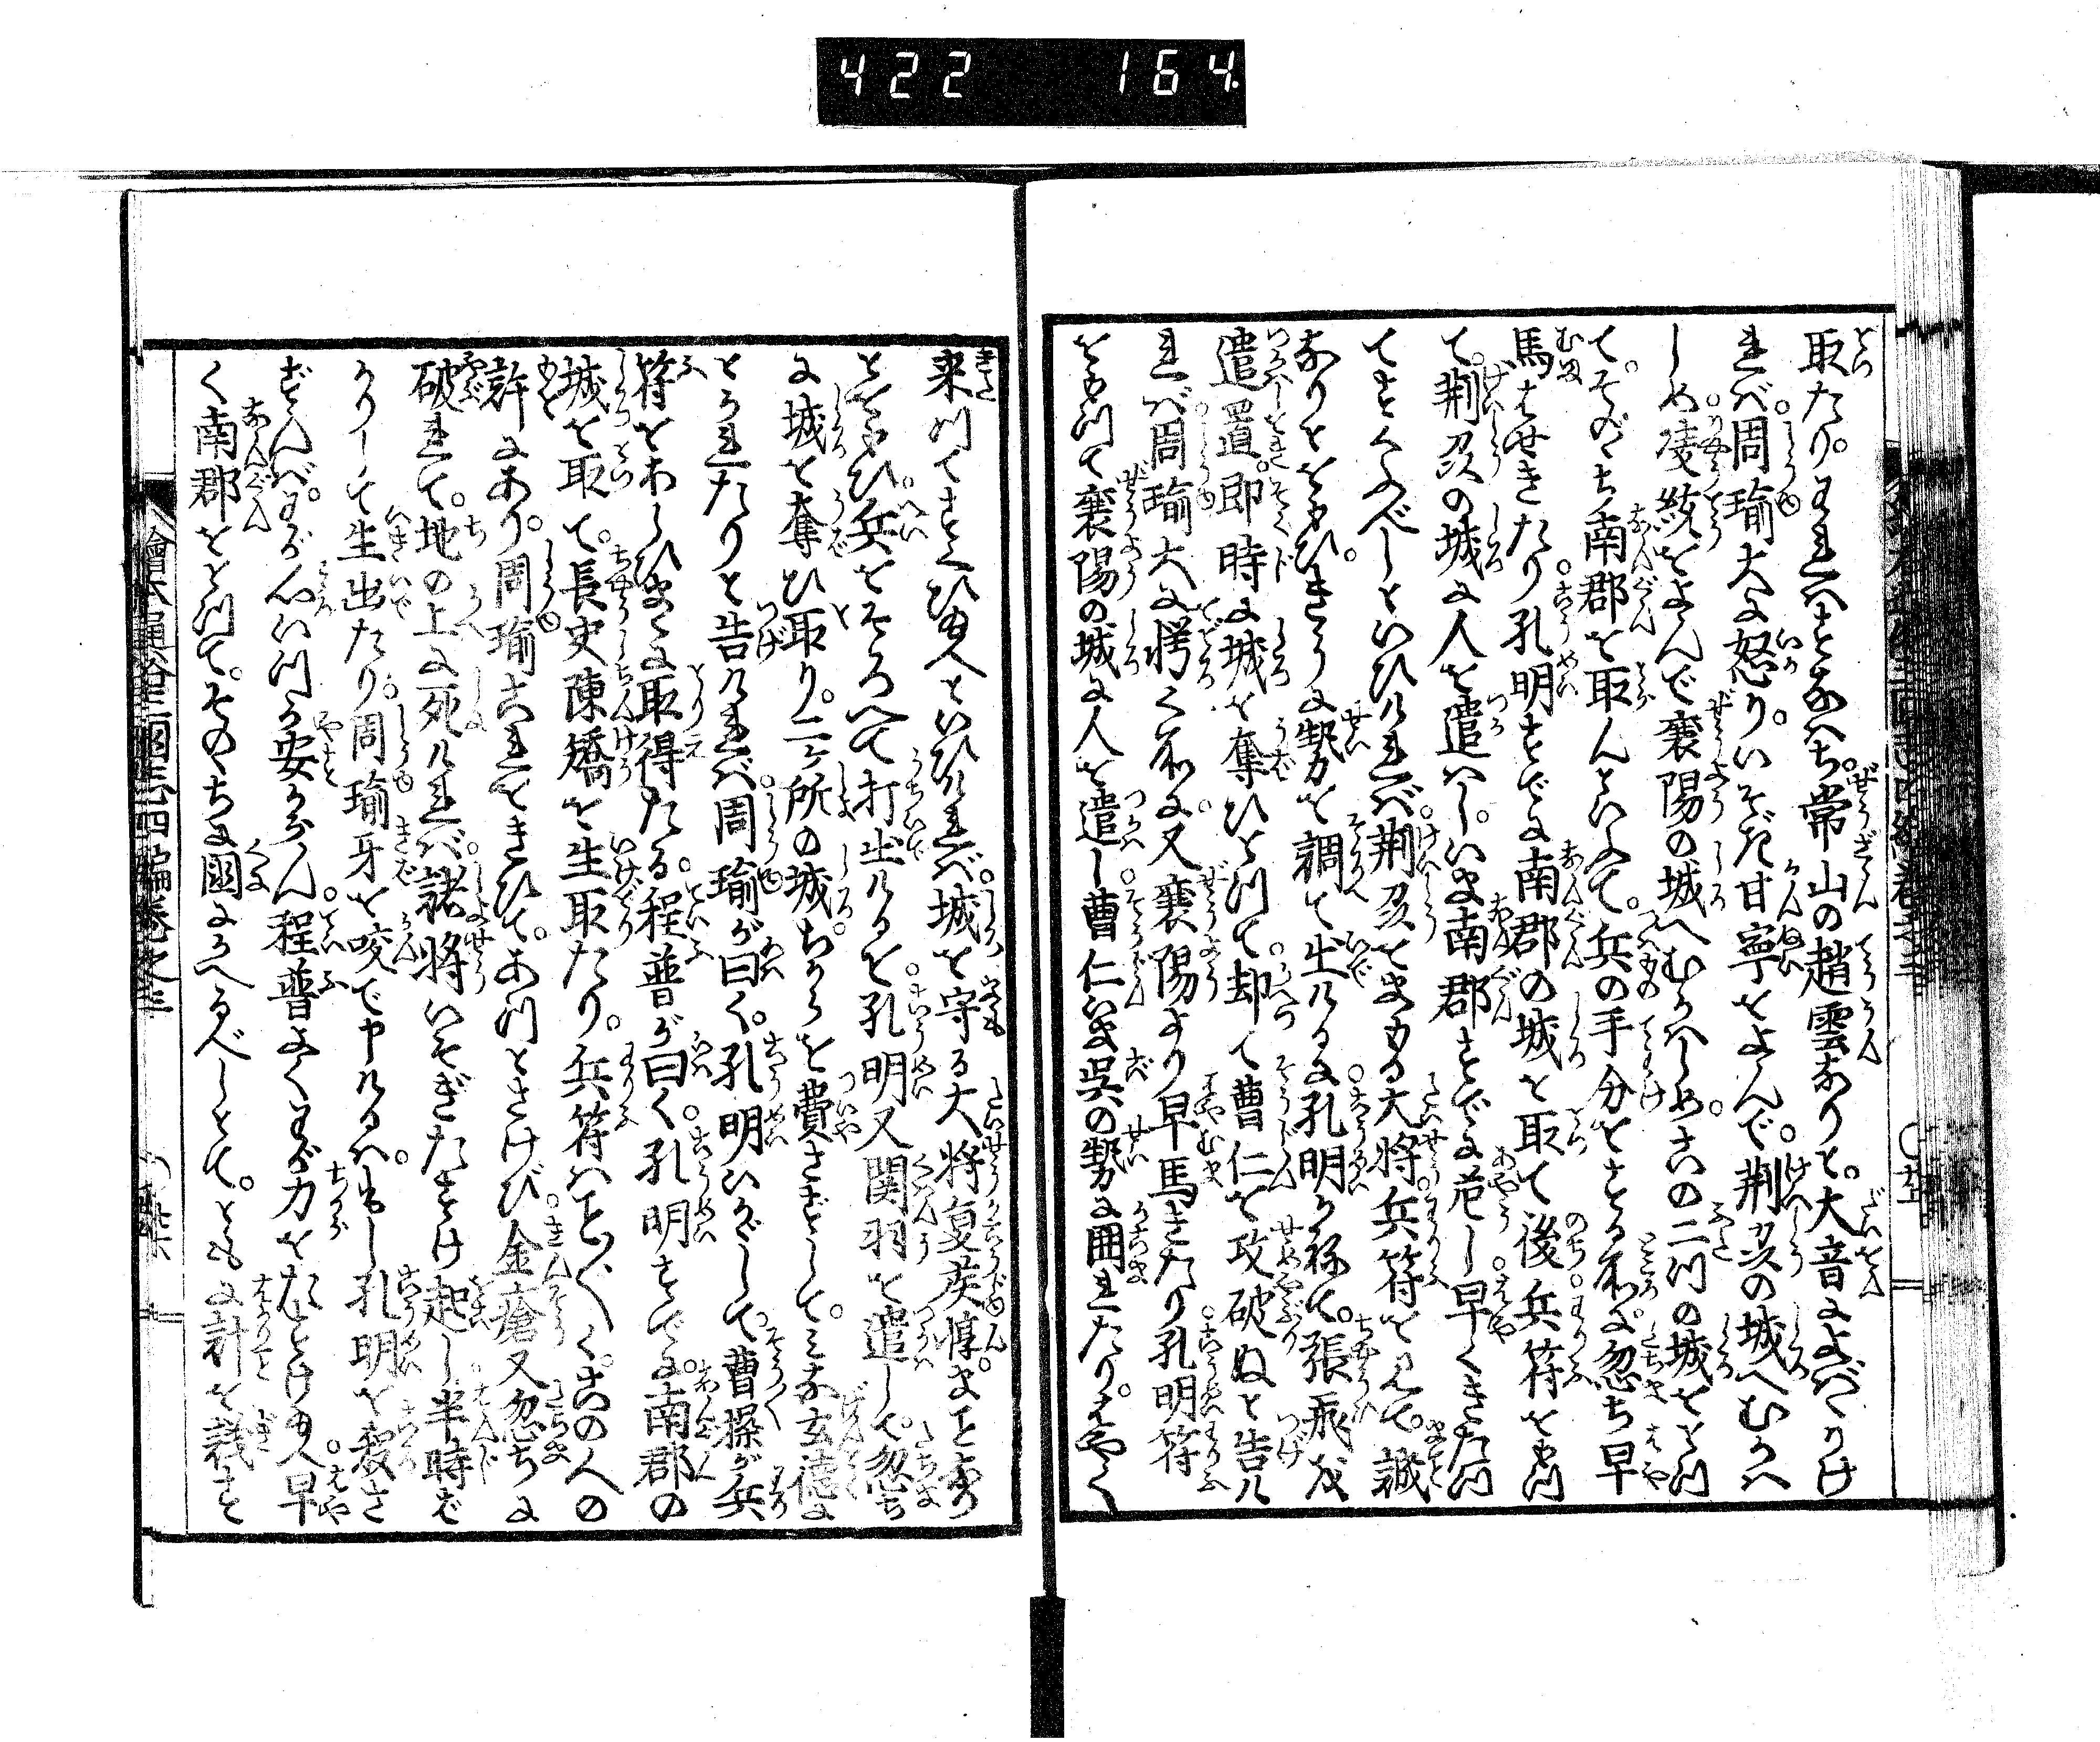 422 164
取たり。われハすなハち。常山の趙雲なりと。大音によバハりけ
れバ。周瑜大に怒り。いそぎ甘寧をよんで。荊州の城へむかハ
しめ。凌統をよんで襄陽の城へむかハしめ。この二川の城をとつ
て。そのゝち南郡を取んといふて。兵の手分をする所に。忽ち早
馬はせきたり。孔明すでに南郡の城を取て後。兵符をもつ
て。荊州の城に人を遣ハし。いま南郡すでに危し。早くきたつ
てすくふべしといひけれバ。荊州をまもる大将。兵符を見て。誠
なりとおもひ。きうに勢を調て出けるに。孔明かねて。張飛を
遣置。即時に城を奪ひとつて。却て曹仁を攻破ぬと告け
れバ。周瑜大に愕く所に。又襄陽より早馬きたり。孔明符
をもつて襄陽の城に人を遣し。曹仁いま呉の勢に囲れたり。はやく
来つてすくひ玉へといひけれバ。城を守る大将夏侯惇。まことなり
とおもひ。兵をそろへて打出けるを。孔明又関羽を遣して。忽ち
に城を奪ひ取り。二ケ所の城ちからを費さずして。みな玄徳に
とられたりと告けれバ。周瑜が曰く。孔明いかがして。曹操が兵
符をわらひまくに取得たる。程普が曰く。孔明すでに。南郡の
城を取て。長史陳矯を生取たり。兵符ハことごとく。この人の
許にあり。周瑜これをきひて。あつとさけび。金瘡又忽ちに
破れて。地の上に死けれバ。諸将いそぎたすけ起し。半時ば
かりして生出たり。周瑜牙を咬で申けるハ。もし孔明を殺さ
ずんバ。わが心いつか安からん。程普よくわが力をたすけ玉へ。早
く南郡をとつて。そのゝちに國にかへるべしとて。ともに計を議す
繪本通俗三國志四編卷之三